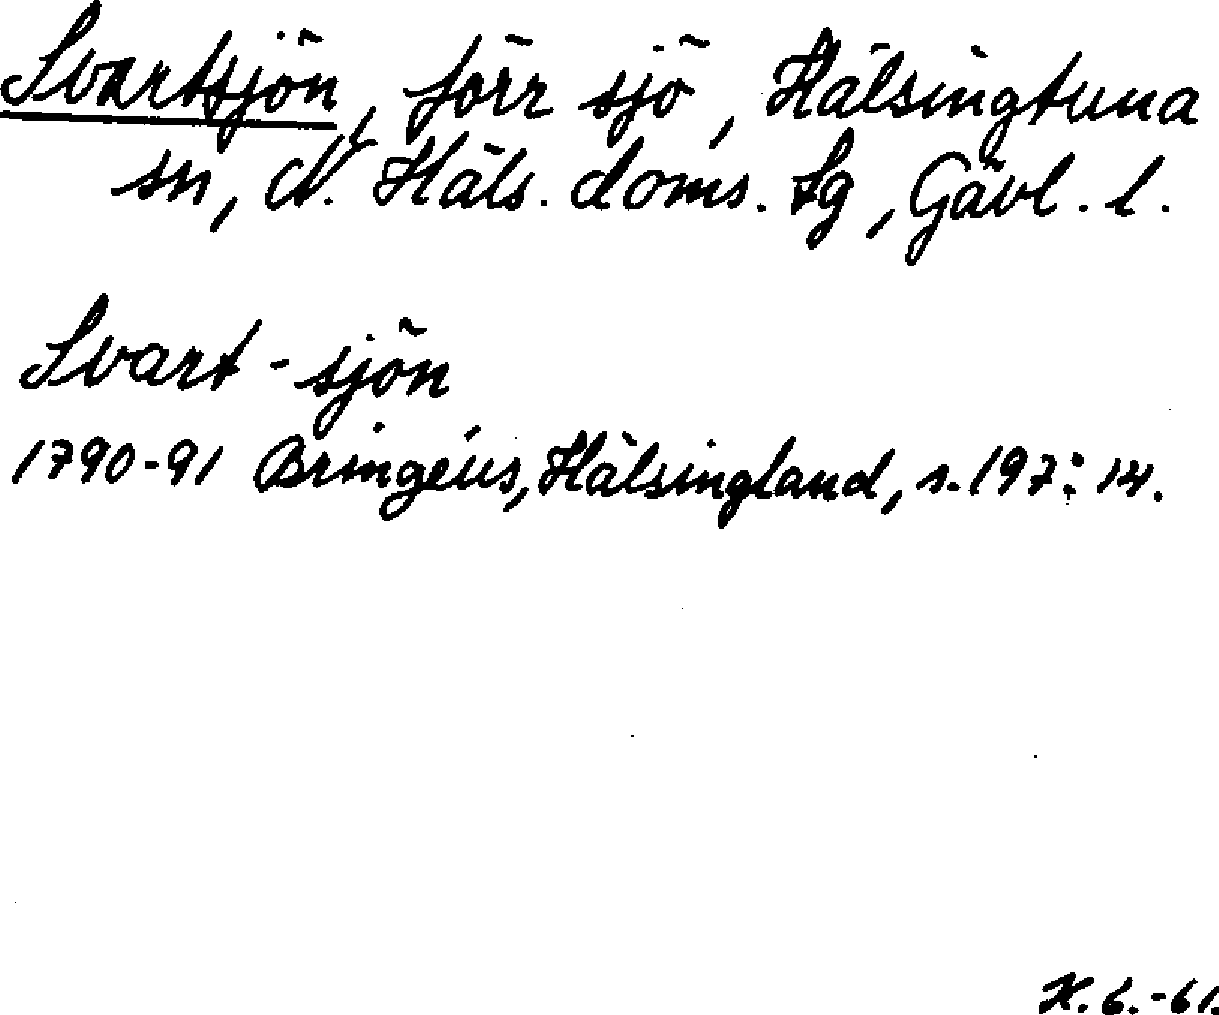 Svartsjön, förr sjö, Hälsingtuna
sn, N. Häls. doms. lg, Gävl. l.
Svart-sjön
1790-91 Bringéus, Hälsingland, s. 197: 14.
X. 6.-61.